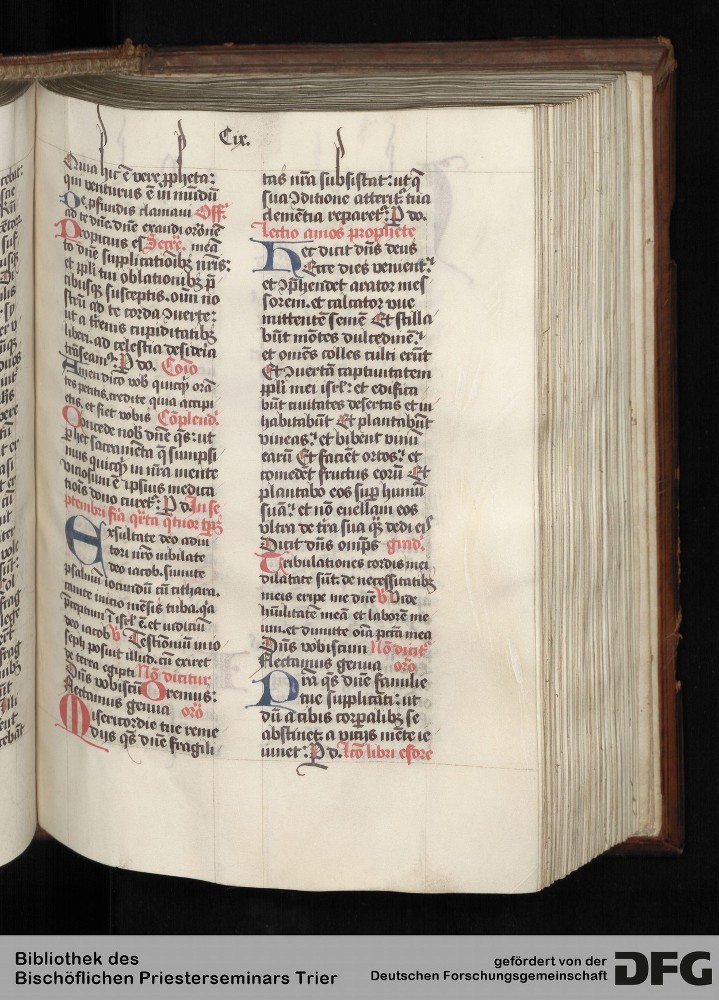 Cix.
Quia hic ē vere ꝓpheta:
qui venturus ē in mūdū
De ꝓfundis clamaui Off͛.
ad te dn̄e. dn̄e exaudi orōnē
Propicius es Secre͛. meā
to dn̄e supplicatioībꝫ nr̄is:
et ppl̄i tui oblationibꝫ p̄
cibusqꝫ susceptis. om̄i no
strū ad te corda ꝯuerte:
ut a tr̄enis cupiditatibꝫ
liberi. ad celestia desideria
trāseamꝰ. P do. Cōio
Amen dico vob quicqͥd orā
tes petitis. credite quia accipi
etis. et fiet vobis Cōplend͛.
Concede nob̄ dn̄e qs̄: ut
ꝑ hec sacramēta q̄ sumpsi
mus quicqͥd in nr̄a mente
viciosum ē ipsius medica
tiōis dono curet͛. P do In se
ptembri fīa qͣrta qtuor tꝑꝫ
Exsultate deo adiu
tori nr̄o iubilate
deo iacob. sumite
psalmū iocundū cū cithara.
canite inicio mēsis tuba. qa
p̄ceptum ī isrl̄ ē. et iudiciū
deo iacob V Testīoniū in io
seph posuit illud. cū exiret
de terra egipti Nō dicitur
Dn̄s vobiscū Oremus:
flectamus genua orō
Misericordie tue reme
dijs qs̄ dn̄e fragili
tas nr̄a subsistat: ut q̄
sua ꝯditione atterit͛ tua
clemētia reparet͛. P do.
Lectio amos prophete
Hec dicit dn̄s deus
Ecce dies venient.
et ꝯp̄hendet arator mes
sorem. et calcator vue
mittentē semē Et stilla
būt mōtes dulcedinē.
et om̄es colles culti erūt
Et ꝯuertā captiuitatem
ppl̄i mei isrl̄: et edifica
būt ciuitates desertas et in
habitabūt Et plantabūt
vineas. et bibent vinū
earū Et faciēt ortos. et
comedēt fructus eorū Et
plantabo eos suꝑ humū
suā. et nō euellam eos
vltra de tr̄a sua qͣꝫ dedi eis
Dicit dn̄s om̄ps grad͛.
Tribulationes cordis mei
dilatate sūt. de necessitatibꝫ
meis eripe me dn̄e V Vide
hūilitatē meā et laborē me
um. et dimitte oīa pctā mea
Dn̄s vobiscum Nō dicit͛
flectamus genua orō
Pr̄a qs̄ dn̄e familie
tue supplicāti: ut
dū a cibis corꝑalibꝫ se
abstinet. a vitijs mēte ie
iunet. P d. Lcō libri esdre
Bibliothek des
Bischöflichen Priesterseminars Trier
gefördert von der
Deutschen Forschungsgemeinschaft
DFG